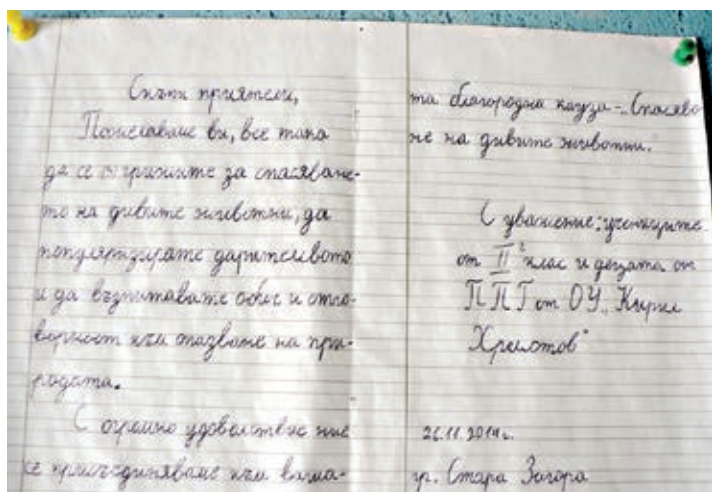 Скъпи приятели,
Пожелаваме ви, все така
да се грижите за спасяване-
то на дивите животни, да
популяризирате дарителството
и да възпитавате обич и отго-
ворност към опазване на при-
родата.
С огромно удоволствие ние
се присъединяваме към ваша-
та благородна кауза - „Спасява
не на дивите животни.
С уважение: учениците
от II клас и децата от
ППГ от ОУ „Кирил
Христов"
26.11.2014г.
гр. Стара Загора